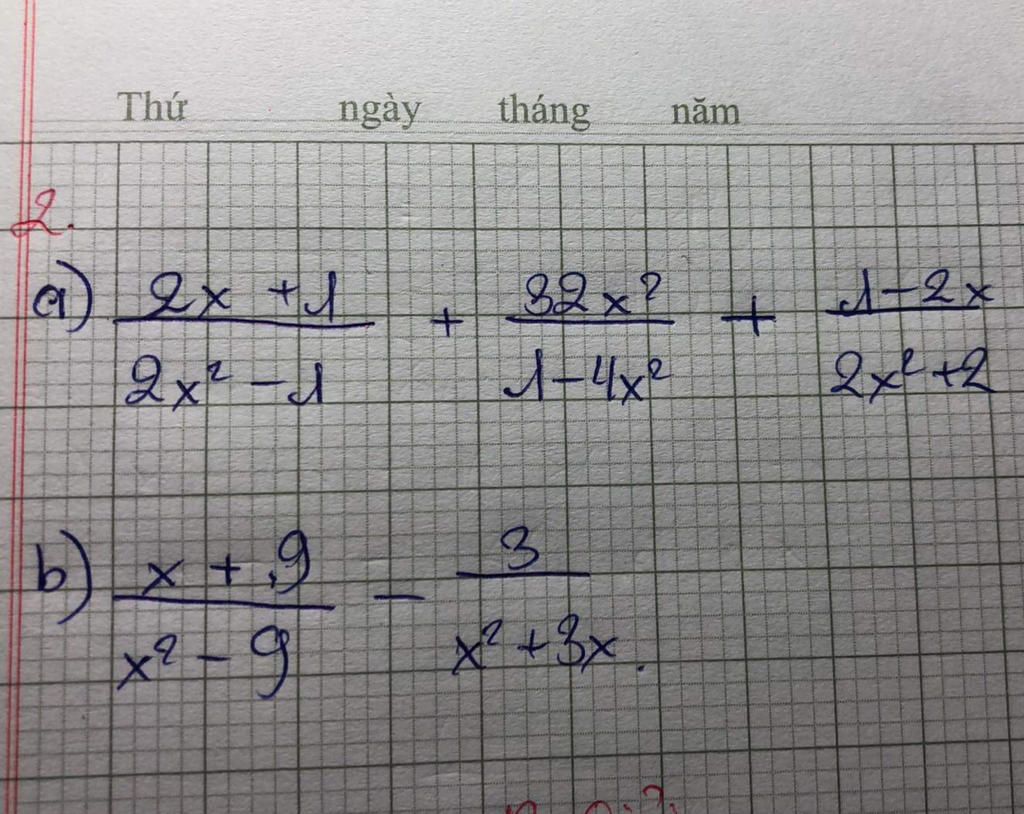 Thứ ngày tháng năm
2.
a) (2x + 1)/(2x² - 1) + 32x²/(1 - 4x²) + (1 - 2x)/(2x² + 2)
b) (x + 9)/(x² - 9) - 3/(x² + 3x).